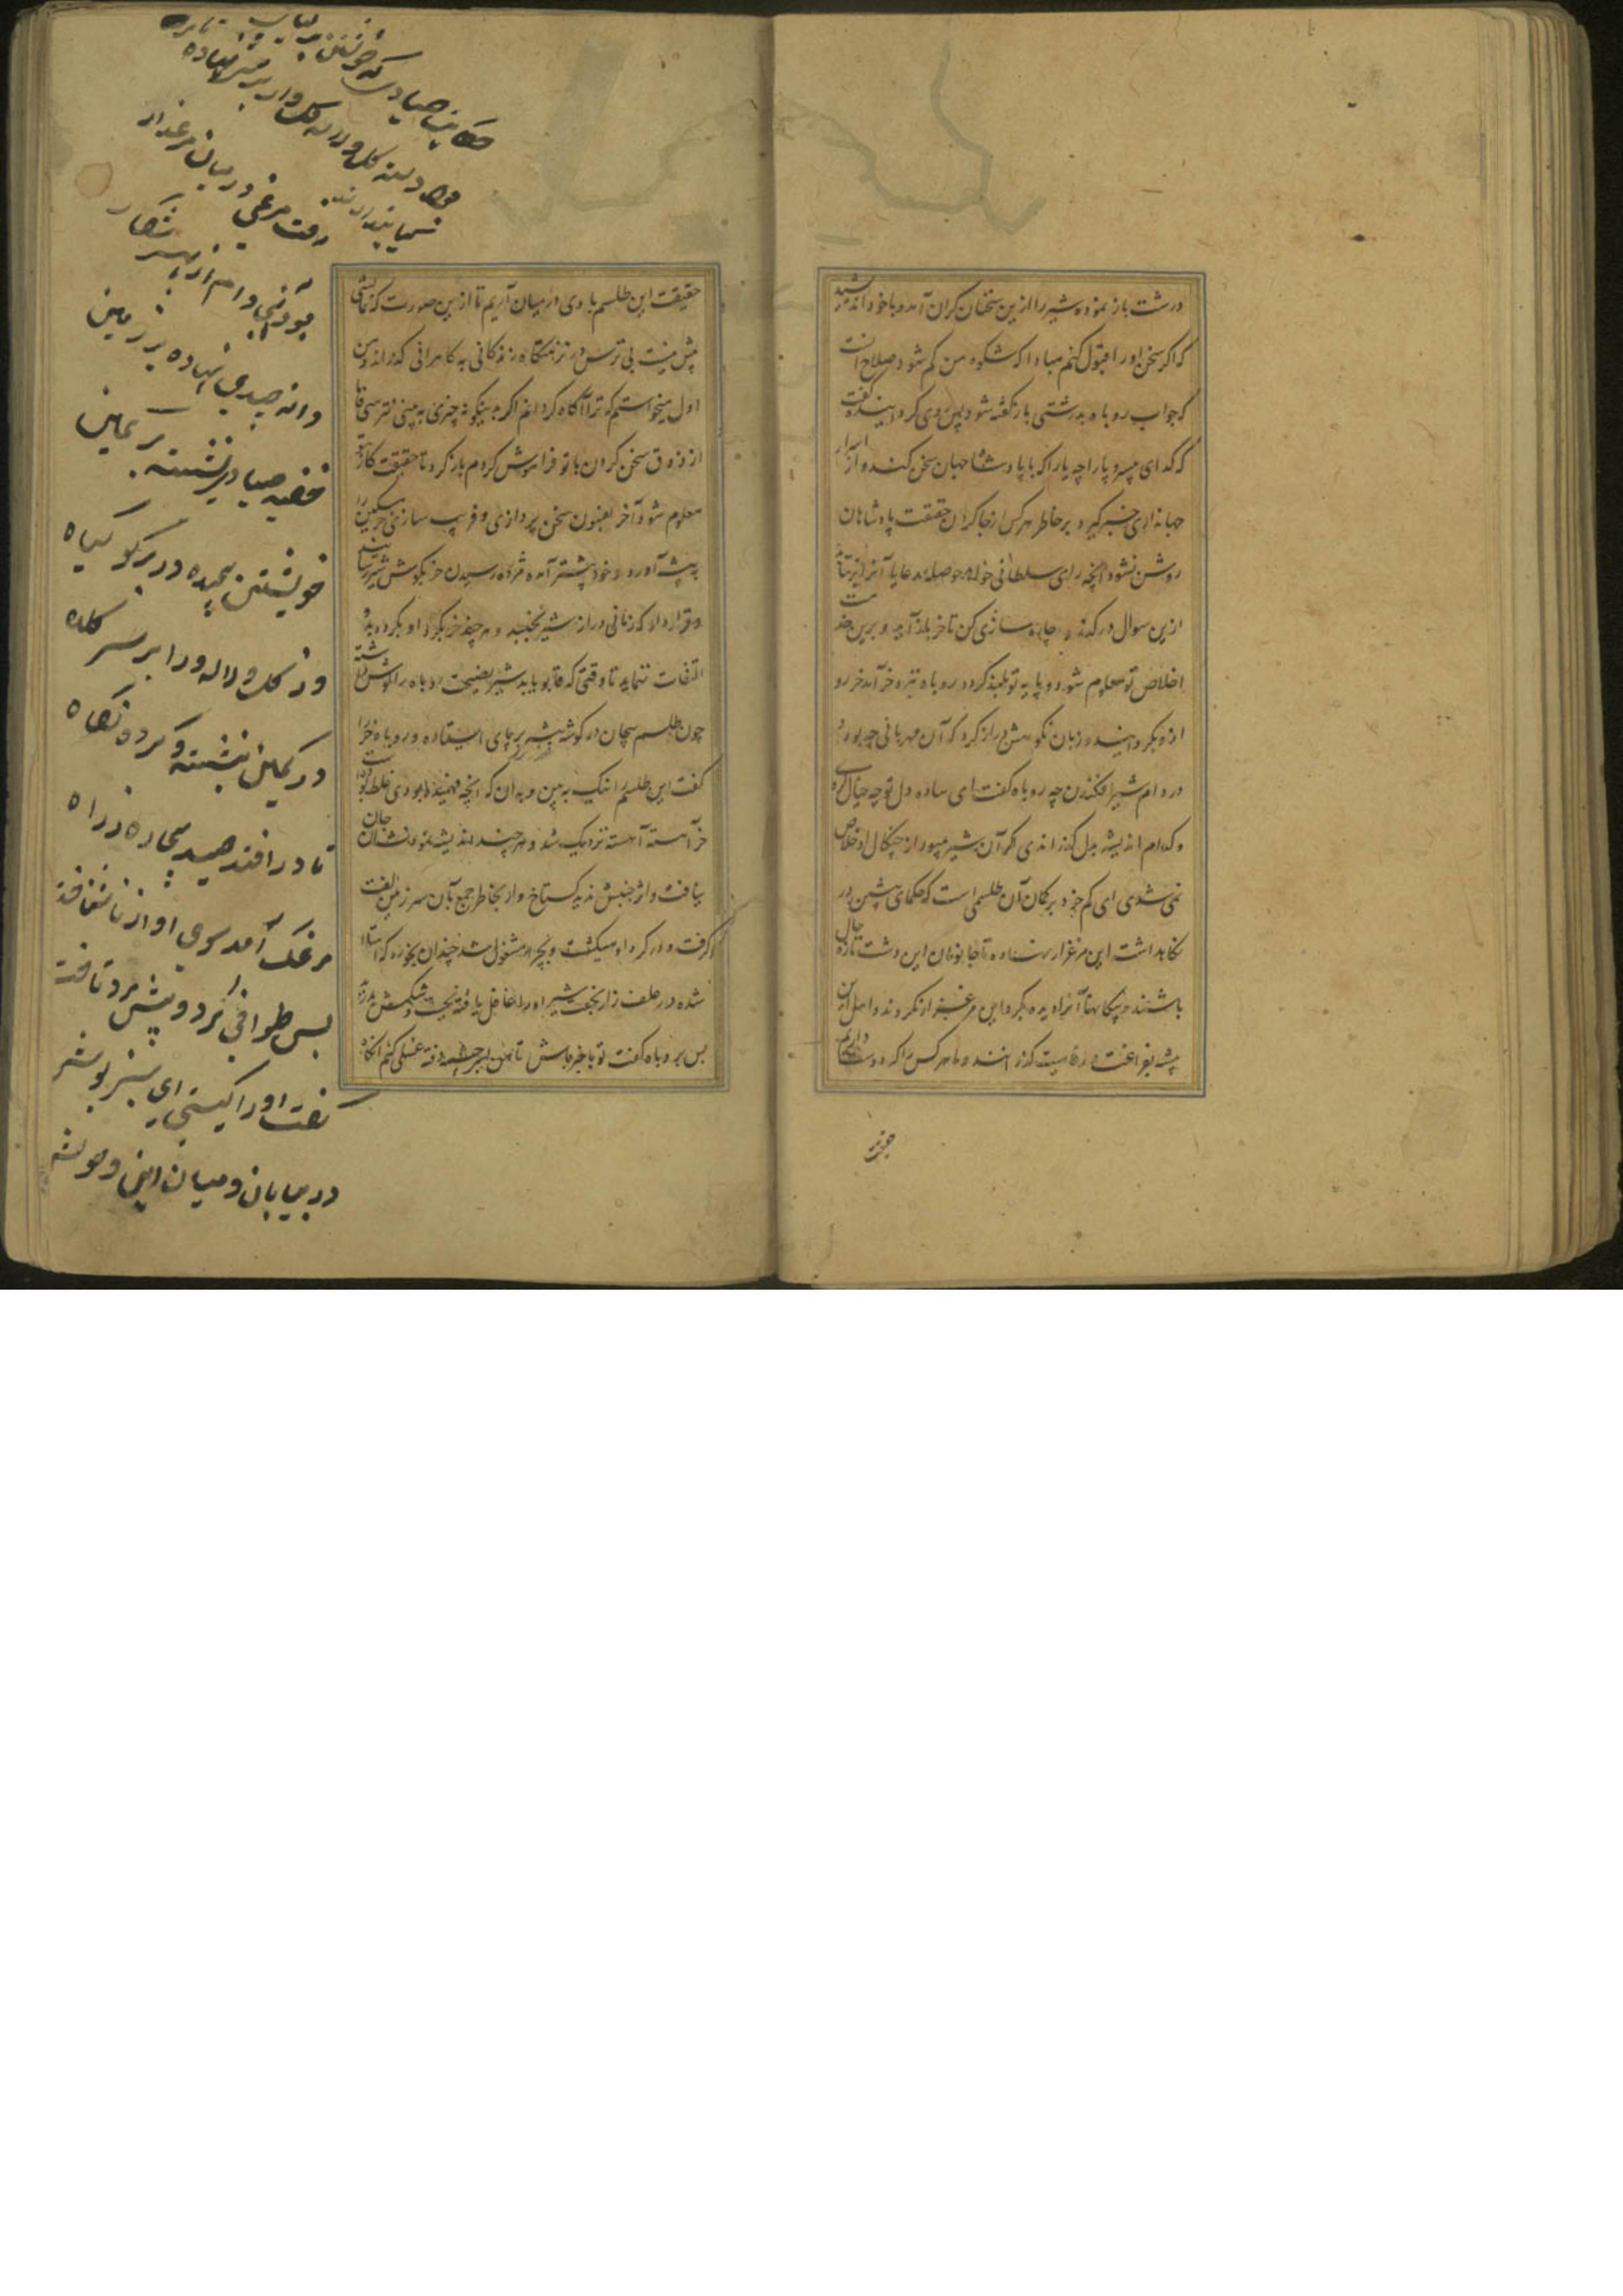 درشت باز نموده شیر را ازین سخنان گران آمد و با خود اندیشید
که اگر سخن او را قبول کنم مبادا که شکوه من کم شود صلاح آنست
که جواب روباه بدرشتی باز گفته شود پس روی گردانیده گفت
که گدای بی سر و پا را چه یارا که با پادشاه جهان سخن کند و از اسرار
جهانداری خبر گیرد بر خاطر هر کس از چاکران حقیقت پادشاهان
روشن نشود آنچه رای سلطانی خواهد حوصله رعایا آنرا بر نتابد
ازین سوال درگذر و چاره سازی کن تا خر بلند آید و برین
اخلاص تو معلوم شود و پایه تو بلند گردد روباه نزد خر آمد خر رو
ازو بگردانید و زبان نکوهش دراز کرد که آن مهربانی چه بود و
در دام شیر افکندن چه روباه گفت ای ساده دل تو چه خیال کردی
و کدام اندیشه بدل گذراندی مگر آن شیر میبود از چنگال او خلاص
نمی شدی ای کم خرد بر مکان آن طلسمی است که حکمای پیشین در
نگاهداشت این مرغزار بسته‌اند تا جانوران این دشت تازه حال
باشند چه بیگانها آنرا دیده گرد این مرغزار نگردند و اهل این
بیشه بفراغت و رفاهیت گذرانند و ما هر کس را که دوست داریم
حقیقت این طلسم با وی در میان آریم تا ازین صورت که نمایشی
بیش نیست بی ترس در نزهتگاه زندگانی به کامرانی گذراند و من
اول میخواستم که ترا آگاه گردانم اگر بدینگونه چیزی به بینی نترسی اما
از ذوق سخن کردن با تو فراموش کردم باز گرد تا حقیقت کار
معلوم شود آخر بفنون سخن پردازی و فریب سازی خر مسکین را
به بیشه آورد و خود پیشتر آمده مژده رسیدن خر بگوش شیر رسانید
و قرار داد که زمانی دراز شیر نجنبد و هر چند خر بگرد او بگردد بدو
التفات ننماید تا وقتی که قابو یابد شیر نصیحت روباه را گوش داشته
چون طلسم بیجان در گوشه بیشه بر پای ایستاده و روباه خر را
گفت این طلسم را نیک به بین و بدان که آنچه فهمیده بودی غلط بود
خر آهسته آهسته نزدیک شد و هر چند اندیشه نمود نشان جان
نیافت و اثر جنبش ندید گستاخ وار بخاطر جمع بآن سرزمین الفت
گرفت و در گرد او میگشت و بچرا مشغول شد چندان بخورد که
شده در علف زار بخفت شیر او را غافل یافته بجست و شکمش بدرید
پس بروباه گفت تو با خبر باش تا من بر چشمه رفته غسلی کنم آنگاه
حکایت صیادی که خویشتن
رفت مرغی در میان مرغزار
بود آنجا دام از بهر شکار
دانه چندی نهاده بر زمین
خفیه صیادی نشسته در کمین
خویشتن پیچیده در برگ و گیاه
وز گل و لاله ورا بر سر کلاه
در کمین بنشسته و کرده نگاه
تا در افتد صید بیچاره ز راه
مرغک آمد سوی او از ناشناخت
پس طوافی کرد و پیش مرد تاخت
گفت او را کیستی ای سبز پوش
در بیابان در میان این وحوش